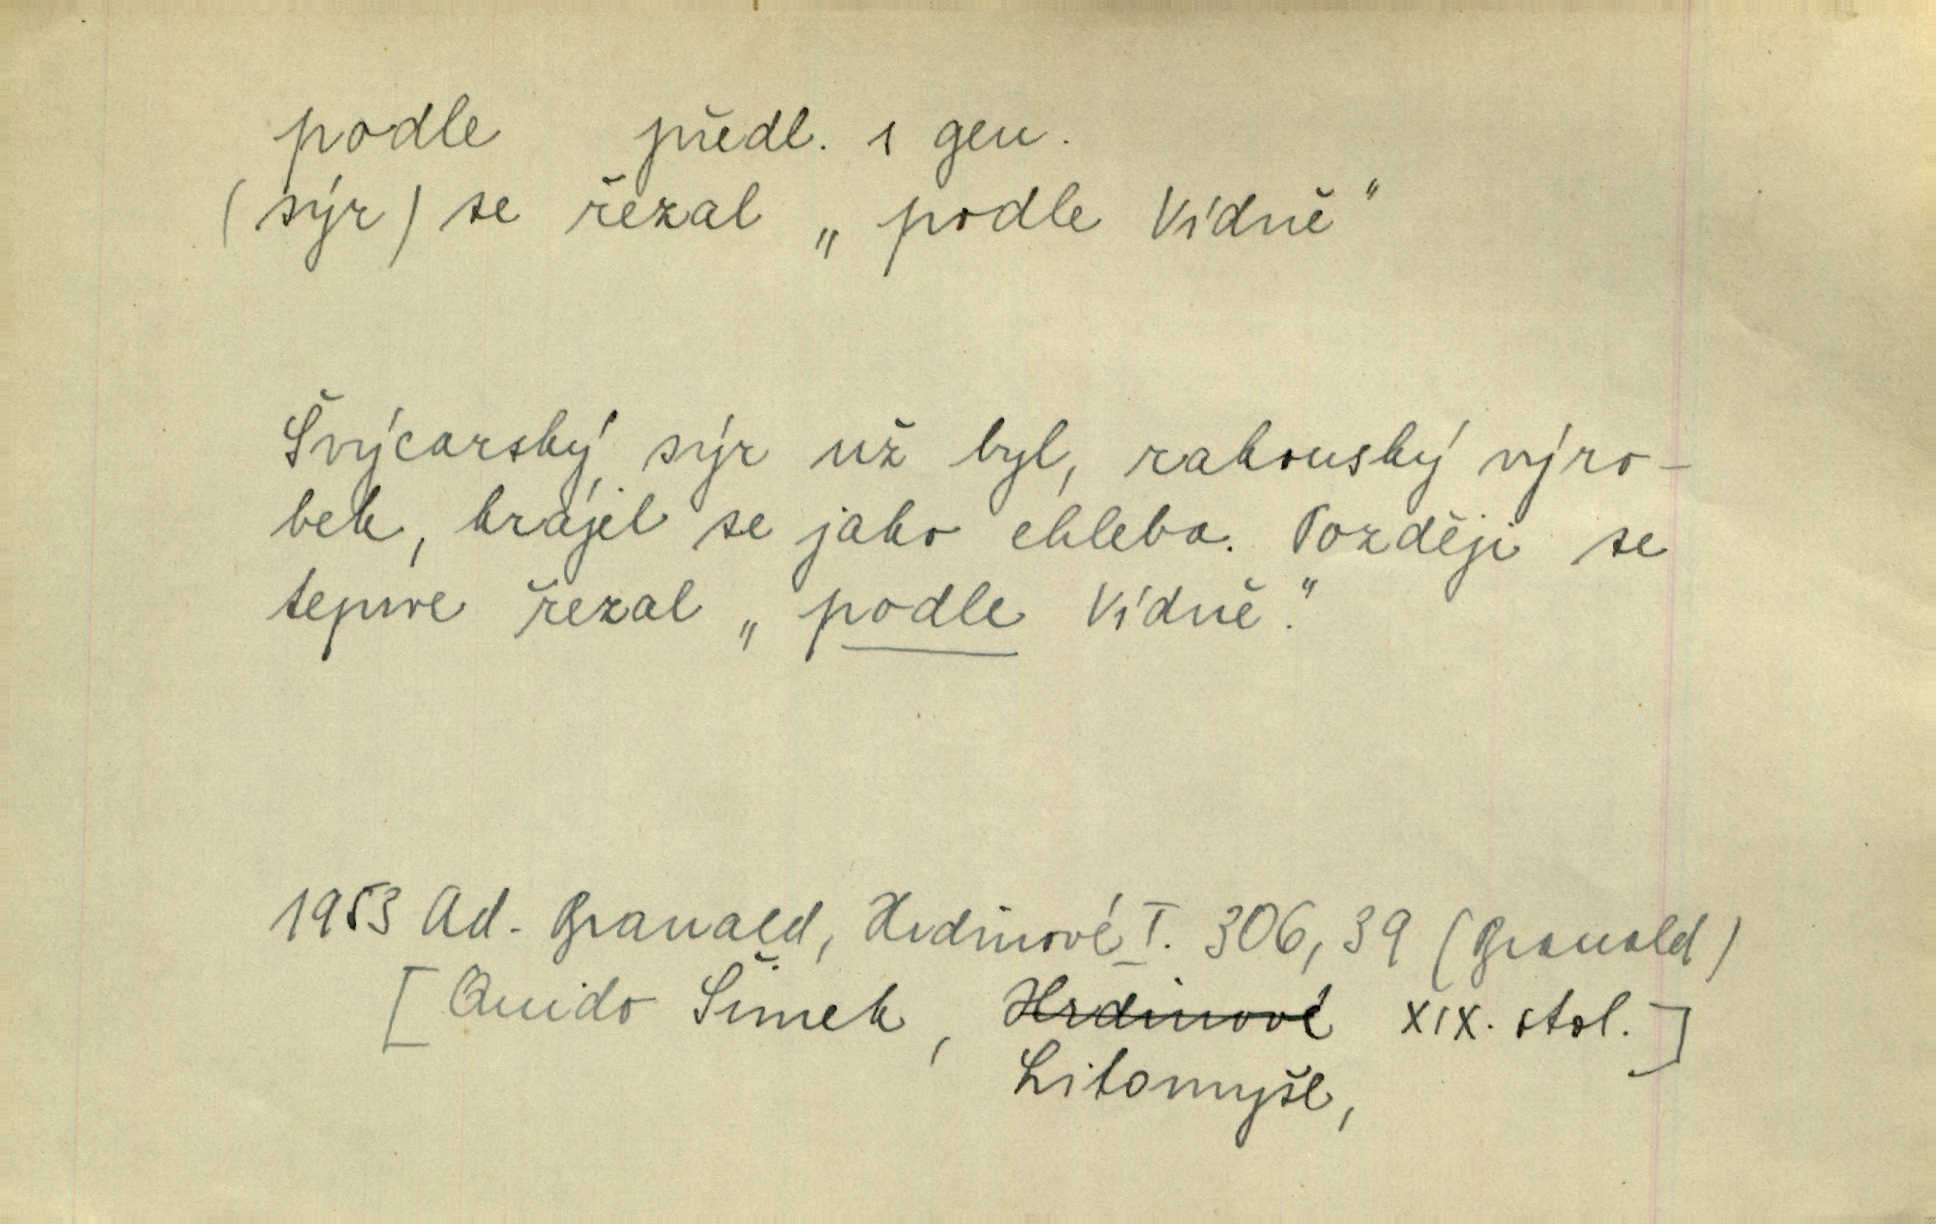 podle předl. s gen.
(sýr) se řezal „podle Vídně“
Švýcarský sýr už byl, rakouský výro-
bek, krájel se jako chleba. Později se
teprve řezal „podle Vídně.“
1953 Ad. Branald, Hrdinové I. 306, 39 (Branald)
[Quido Šimek, Hrdinové XIX. stol.]
Litomyšl,